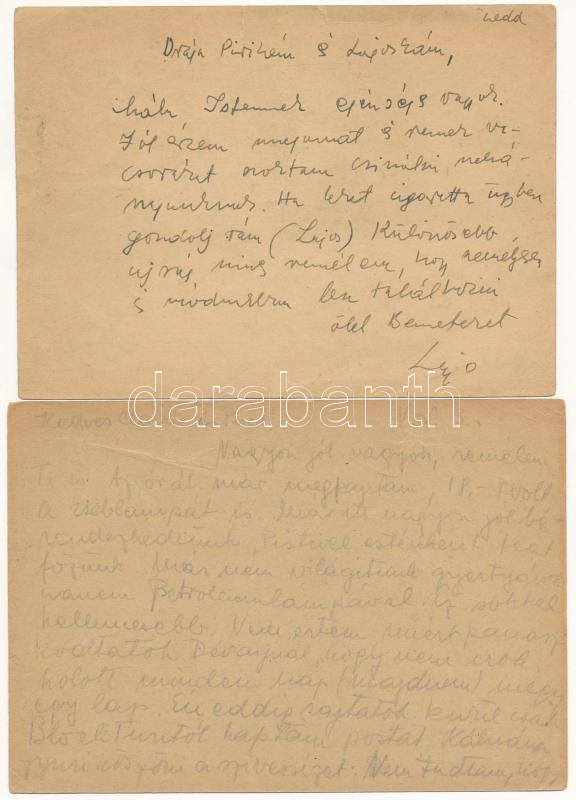 kedd
Drága Pirikém és Lajoskám,
hála Istennek egészséges vagyok.
Jól érzem magamat és remek va-
csorákat szoktam csinálni
Ha lehet cigaretta ügyben
gondolj rám (Lajos) Különösebb
újság nincs remélem, hogy személyesen
és módunkban lesz találkozni
ölel Benneteket
darabanth
Kedves
Nagyon jól vagyok, remélem
Ti is. Az órát már megkaptam, 18.- P volt
a zseblámpát is. Már itt nagyon jól be-
rendezkedtünk, Pistivel esténként teát
főzünk. Már nem világítunk gyertyával
hanem Petroleumlámpával. Ez sokkal
kellemesebb. Nem értem miért panasz-
kodtatok hogy nem írok
holott minden nap (majdnem) megy
egy lap. Én eddig rajtatok kívül csak
kaptam postát
köszöni a szívességet. Nem tudtam, hogy